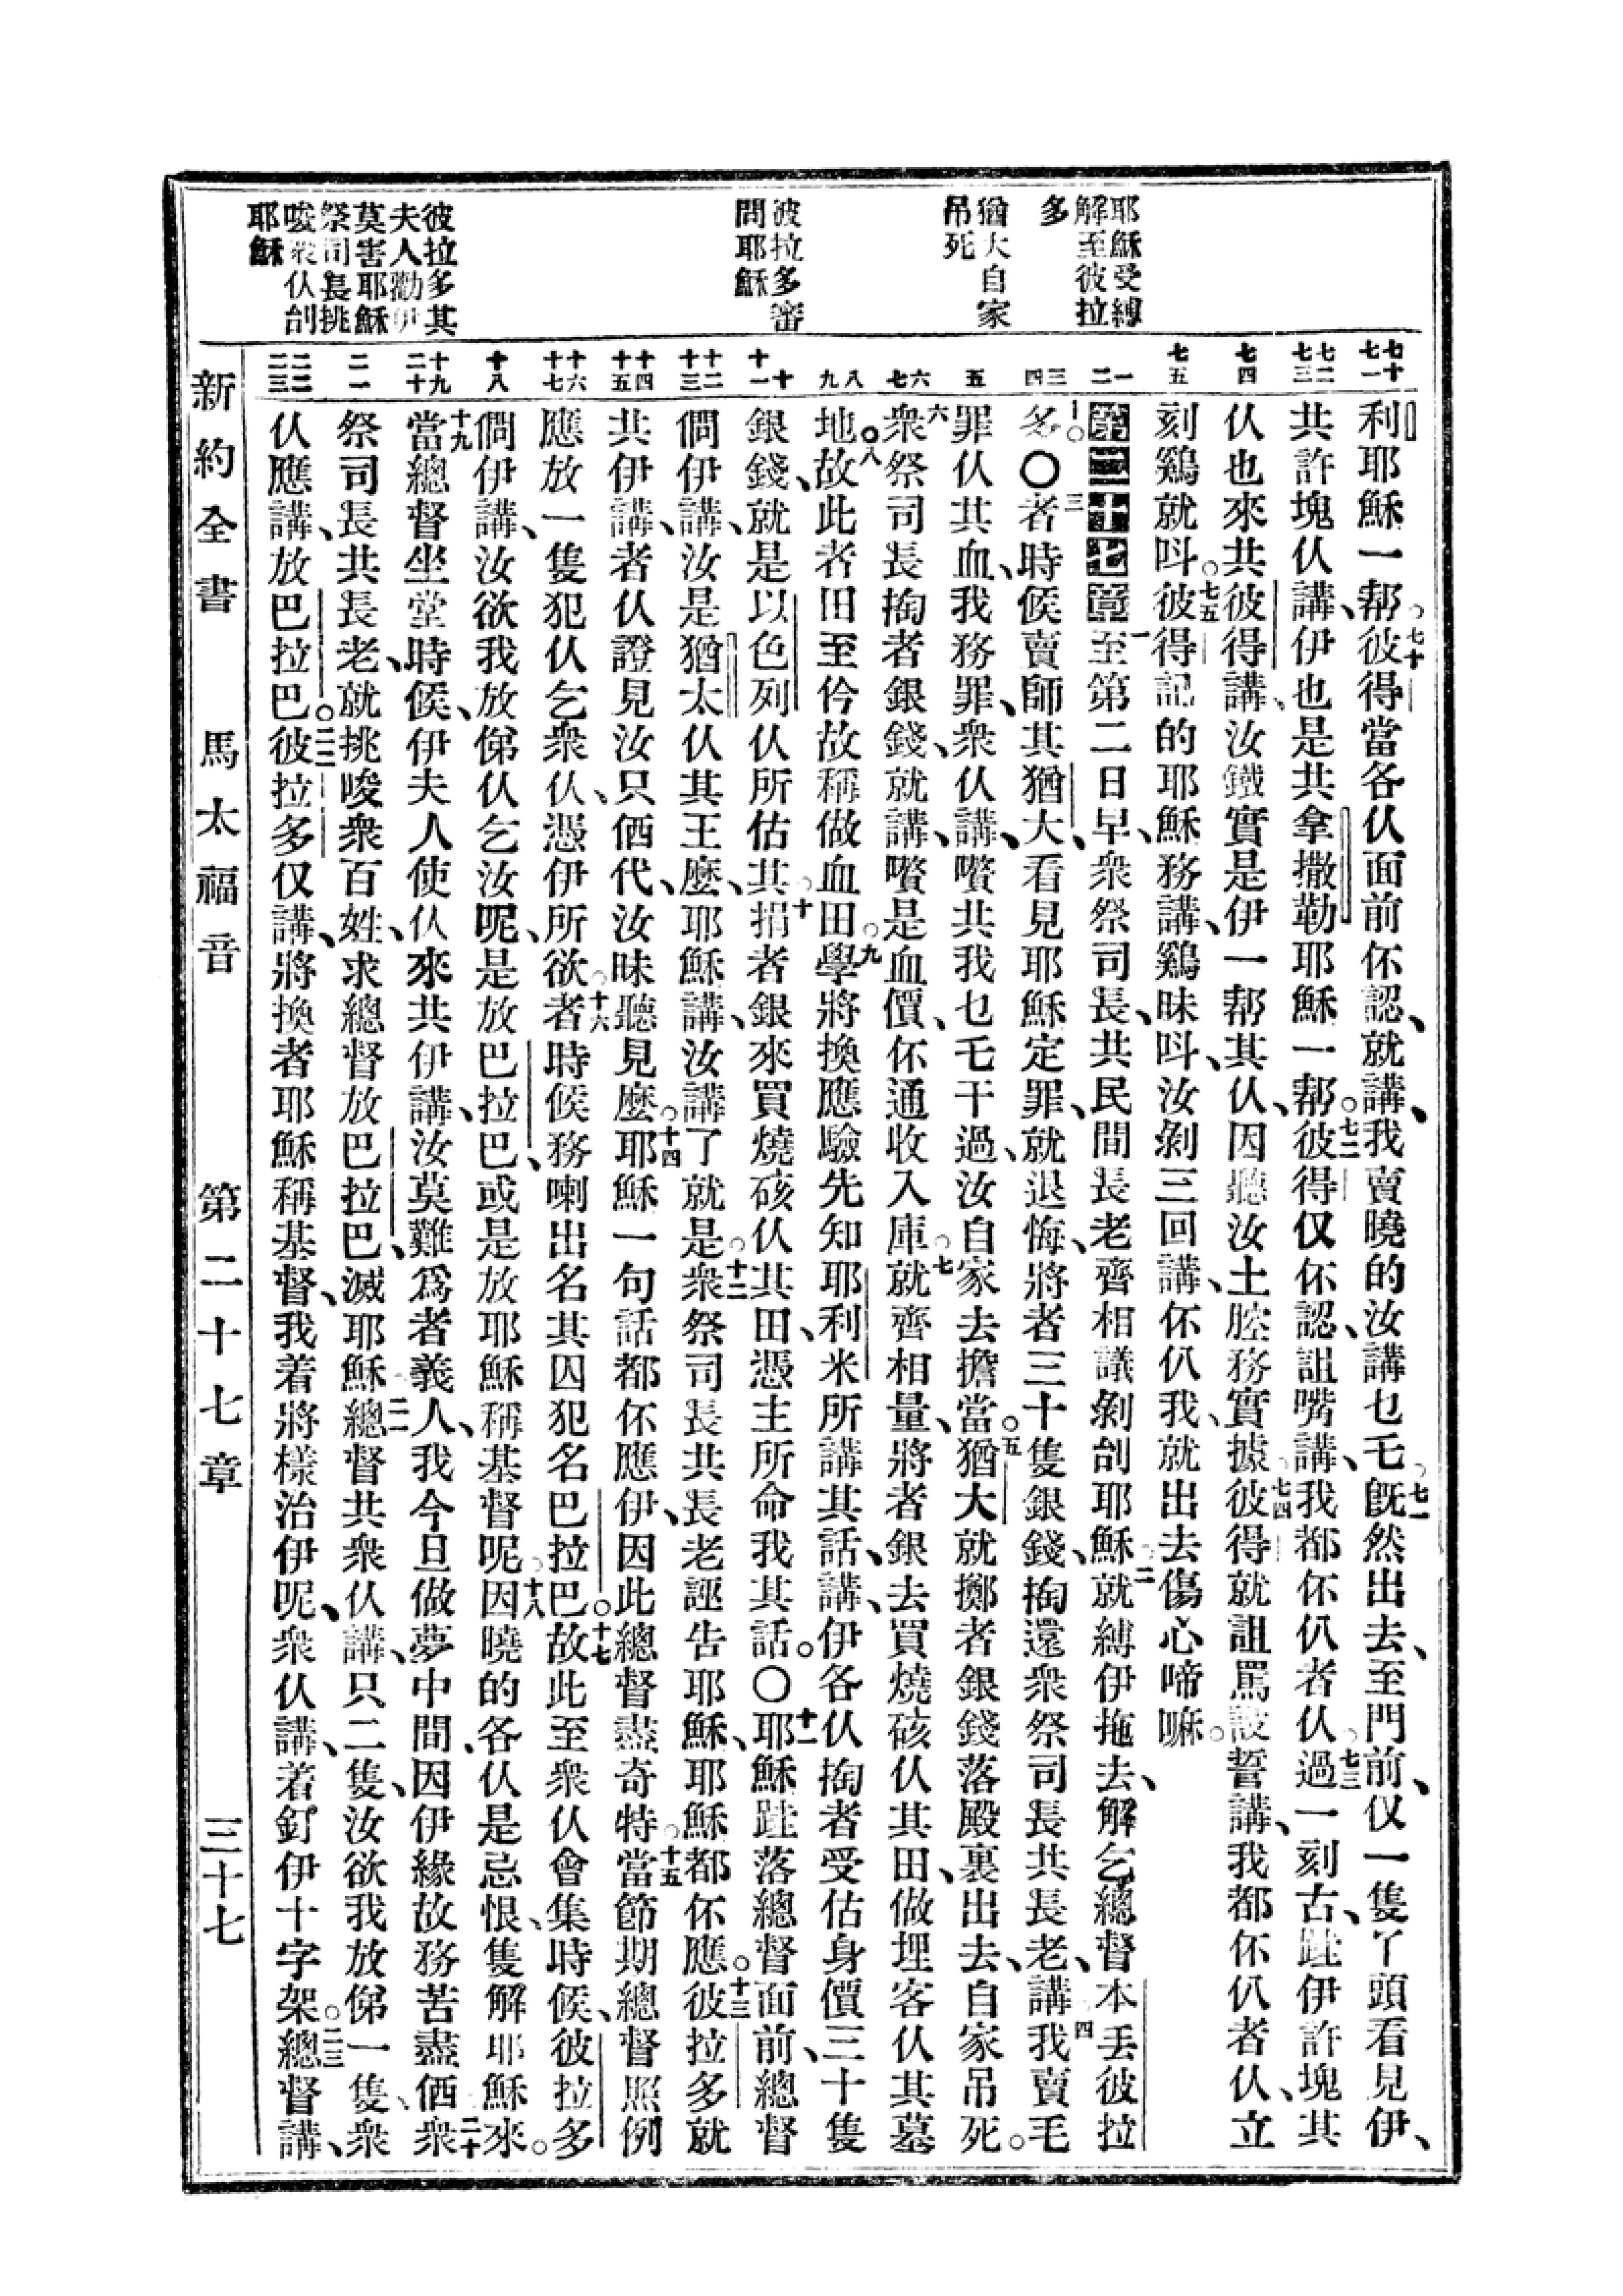 耶穌受縛
解至彼拉
多
猶大自家
吊死
彼拉多審
問耶穌
彼拉多其
夫人勸伊
莫害耶穌
祭司長挑
唆衆仸剖
耶穌
七十 七一
七二 七三
七四
七五
一 二
三 四
五
六 七
八 九
十 十一
十二 十三
十四 十五
十六 十七
十八
十九 二十
二一
二二 二三
利耶穌一幇。七十彼得當各仸面前伓認、就講、我賣曉的汝講乜乇。七一旣然出去、至門前、仅一隻丫頭看見伊、
共許塊仸講、伊也是共拿撒勒耶穌一幇。七二彼得仅伓認、詛嘴講、我都伓仈者仸。七三過一刻古、跸伊許塊其
仸也來共彼得講、汝鐵實是伊一幇其仸、因聽汝土腔務實據。七四彼得就詛罵設誓講、我都伓仈者仸、立
刻鷄就呌。七五彼得記的耶穌務講、鷄昧呌、汝剝三回講、伓仈我、就出去傷心啼嘛。
第二十七章 一至第二日早、衆祭司長、共民間長老齊相議剝剖耶穌。二就縛伊拖去、解乞總督本丢彼拉
多。〇三者時候賣師其猶大、看見耶穌定罪、就退悔、將者三十隻銀錢、掏還衆祭司長共長老、四講我賣乇
罪仸其血、我務罪、衆仸講、嘐共我乜乇干過、汝自家去擔當。五猶大就擲者銀錢落殿裏出去、自家吊死。
六衆祭司長掏者銀錢、就講、嘐是血價、伓通收入庫。七就齊相量、將者銀去買燒硋仸其田、做埋客仸其墓
地。八故此者田至仱故稱做血田。九學將換應驗先知耶利米所講其話、講、伊各仸掏者受估身價三十隻
銀錢、就是以色列仸所估其。十捐者銀來買燒硋仸其田、憑主所命我其話。〇十一耶穌跸落總督面前、總督
僩伊講、汝是猶太仸其王麽、耶穌講、汝講了就是。十二衆祭司長共長老誣告耶穌、耶穌都伓應。十三彼拉多就
共伊講、者仸證見汝只俰代、汝昧聽見麽。十四耶穌一句話都伓應伊、因此總督盡奇特。十五當節期總督照例
應放一隻犯仸乞衆仸、憑伊所欲。十六者時候務喇出名其囚犯名巴拉巴。十七故此至衆仸會集時候、彼拉多
僩伊講、汝欲我放俤仸乞汝呢、是放巴拉巴、或是放耶穌稱基督呢。十八因曉的各仸是忌恨、隻解耶穌來。
十九當總督坐堂時候、伊夫人使仸來共伊講、汝莫難爲者義人、我今旦做夢中間、因伊緣故務苦盡俰。二十衆
祭司長共長老、就挑唆衆百姓、求總督放巴拉巴、滅耶穌。二一總督共衆仸講、只二隻、汝欲我放俤一隻、衆
仸應講、放巴拉巴。二二彼拉多仅講、將換者耶穌稱基督、我着將樣治伊呢、衆仸講、着釘伊十字架。二三總督講、
新約全書 馬太福音 第二十七章 三十七